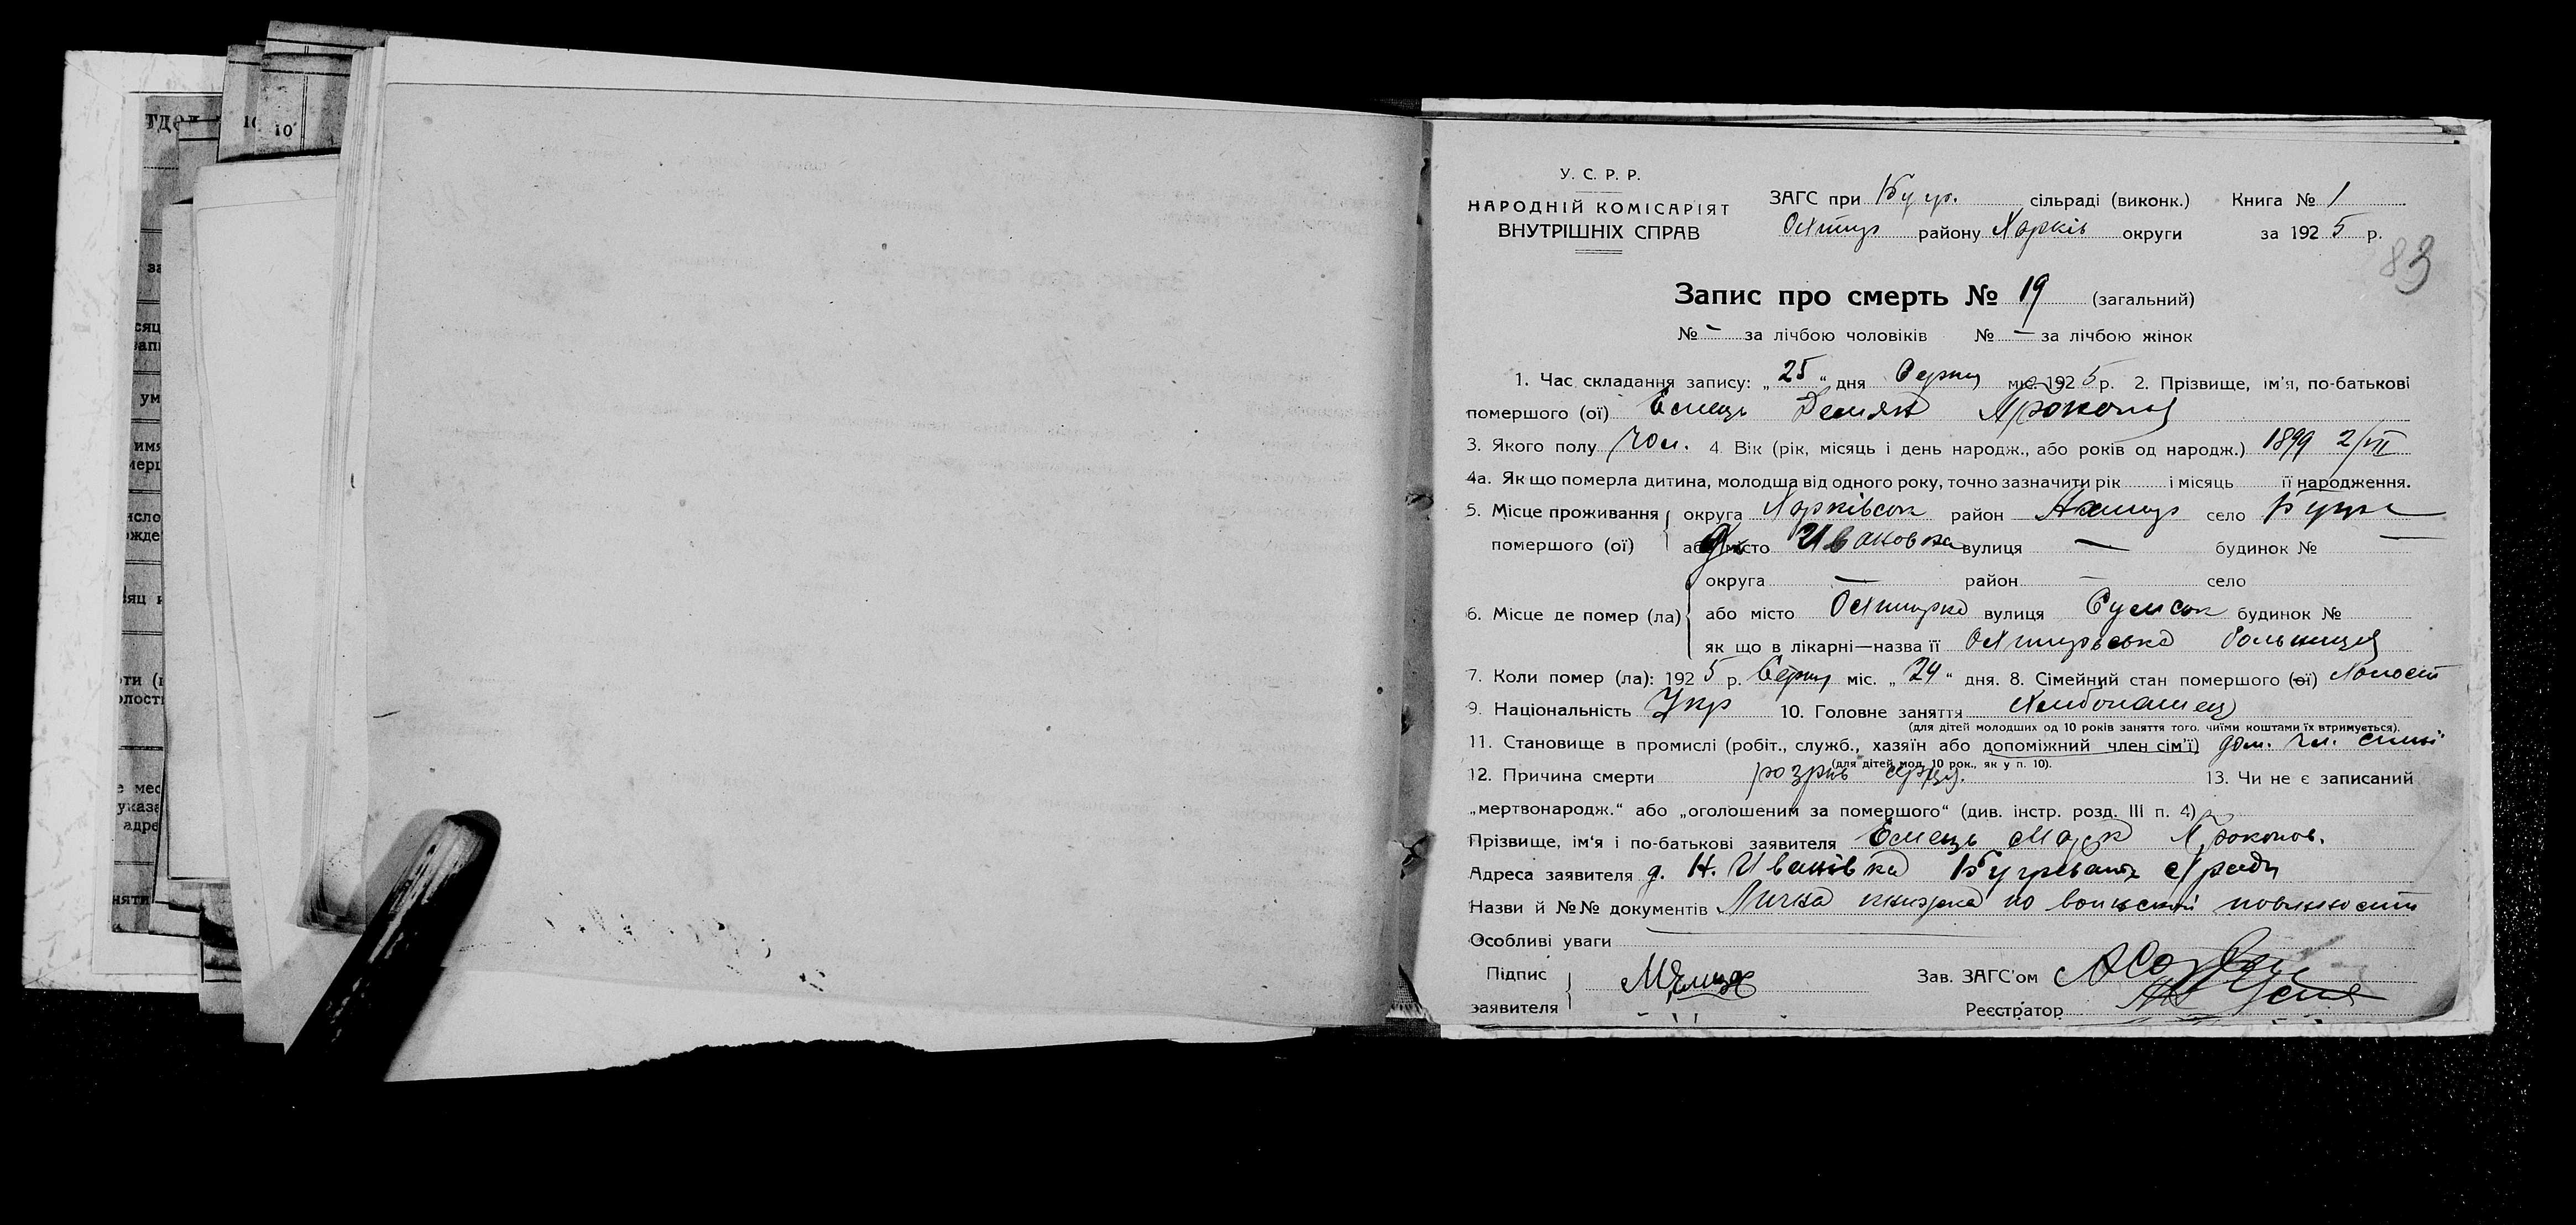 У. С. Р. Р.
НАРОДНІЙ КОМІСАРІЯТ
ВНУТРІШНІХ СПРАВ
ЗАГС при Бугр. сільраді (виконк.) Книга № 1
Охтир району Харків округи за 1925 р.
83
Запис про смерть № 19 (загальний)
№ – за лічбою чоловіків № – за лічбою жінок
1. Час складання запису: „25“ дня Серпня міс. 1925 р. 2. Прізвище, ім'я, по-батькові
помершого (ої) Ємець Демян Прокопов
3. Якого полу чол. 4. Вік (рік, місяць і день народж., або років од народж.) 1899 2/VII
4а. Як що померла дитина, молодша від одного року, точно зазначити рік і місяць її народження.
5. Місце проживання округа Харківськ район Ахтир село
помершого (ої) або місто Ивановка вулиця — будинок № —
округа — район — село
6. Місце де помер (ла) або місто Охтирка вулиця Сумськ будинок №
як що в лікарні—назва її Охтирська больница
7. Коли помер (ла): 1925 р. Серпн міс. „24“ дня. 8. Сімейний стан помершого (ої) Холост
9. Національність Укр 10. Головне заняття Хлібопашец
(для дітей молодших од 10 років заняття того, чиїми коштами їх втримується).
11. Становище в промислі (робіт., служб., хазяїн або допоміжний член сім'ї) доп. чл. сімьі
(для дітей мод. 10 рок., як у п. 10).
12. Причина смерти розрив серця. 13. Чи не є записаний
„мертвонародж.“ або „оголошеним за помершого“ (див. інстр. розд. III п. 4)
Прізвище, ім'я і по-батькові заявителя Ємець Марк Прокопов.
Адреса заявителя д. Н. Иванівка Бугреватск с/ради
Назви й №№ документів Лична книжка по воинской повинности
Особливі уваги
Підпис
заявителя
Зав. ЗАГС'ом
Реєстратор
тдел
10
10
за
сяц
запи
ум
имя
мерш
исло
ожде
яц
ти (
лост
е мес
указа
адре
няти